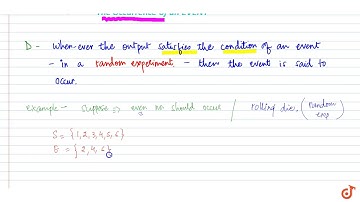 The Occurrence of an EVENT
D - When-ever the output satisfies the condition of an event
- in a random experiment. - then the event is said to
occur.
Example - Suppose :→ even no should occur / rolling die, (random
exp)
S = {1,2,3,4,5,6}
E = {2,4,6}